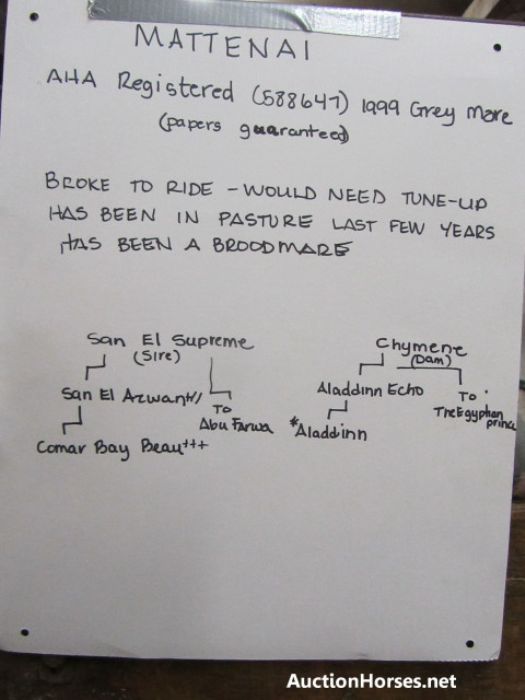 MATTENAI
AHA Registered (588647) 1999 Grey Mare
(papers guaranteed)
BROKE TO RIDE - WOULD NEED TUNE-UP
HAS BEEN IN PASTURE LAST FEW YEARS
HAS BEEN A BROODMARE
San El Supreme
(Sire)
San El Azwan+/
TO
Abu Farwa
Comar Bay Beau+++
Chymene
(Dam)
Aladdinn Echo
TO
The Egyptian
prince
*Aladdinn
AuctionHorses.net